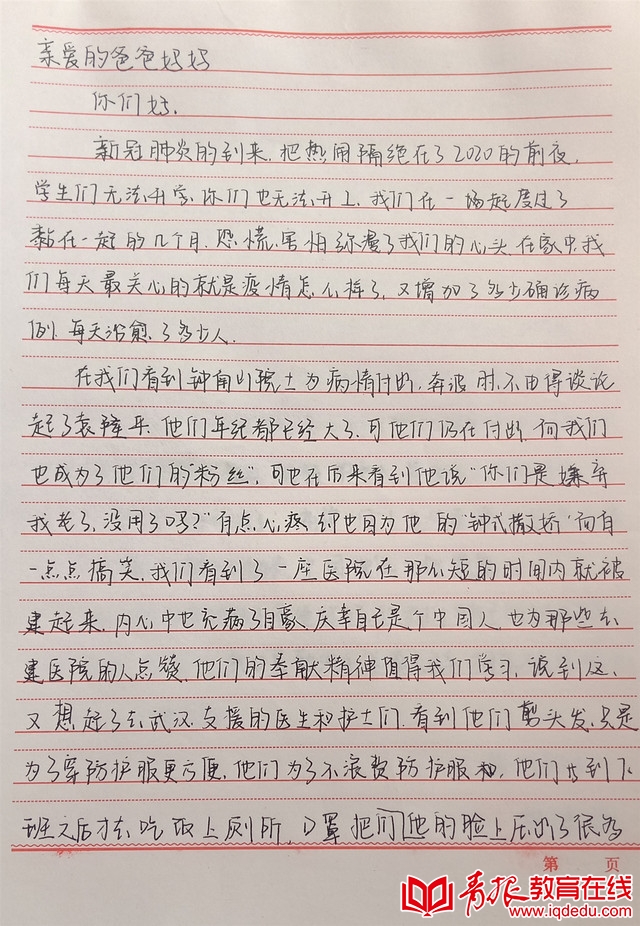 亲爱的爸爸妈妈
你们好.
新冠肺炎的到来.把热闹隔绝在了2020的前夜.
学生们无法升学.你们也无法开工.我们在一场起度过了
黏在一起的几个月.恐慌.害怕弥漫了我们的心头.在家中.我
们每天最关心的就是疫情怎么样了.又增加了多少确诊病
例.每天治愈了多少人.
在我们看到钟南山院士为病情付出.奔波时.不由得谈论
起了袁隆平.他们年纪都已经大了.可他们仍在付出.而我们
也成为了他们的"粉丝".可也在后来看到他说"你们是嫌弃
我老了.没用了吗?"有点心疼.却也因为他的"钟式撒娇"而有
一点点搞笑.我们看到了一座医院在那么短的时间内就被
建起来.内心中也充满了自豪.庆幸自己是个中国人.也为那些去
建医院的人点赞.他们的奉献精神值得我们学习.说到这.
又想起了去武汉支援的医生和护士们.看到他们剪头发.只是
为了穿防护服更方便.他们为了不浪费防护服.他们等到下
班之后才去吃饭上厕所.口罩把们他的脸上压出了很多
第 页
青报教育在线
www.iqdedu.com